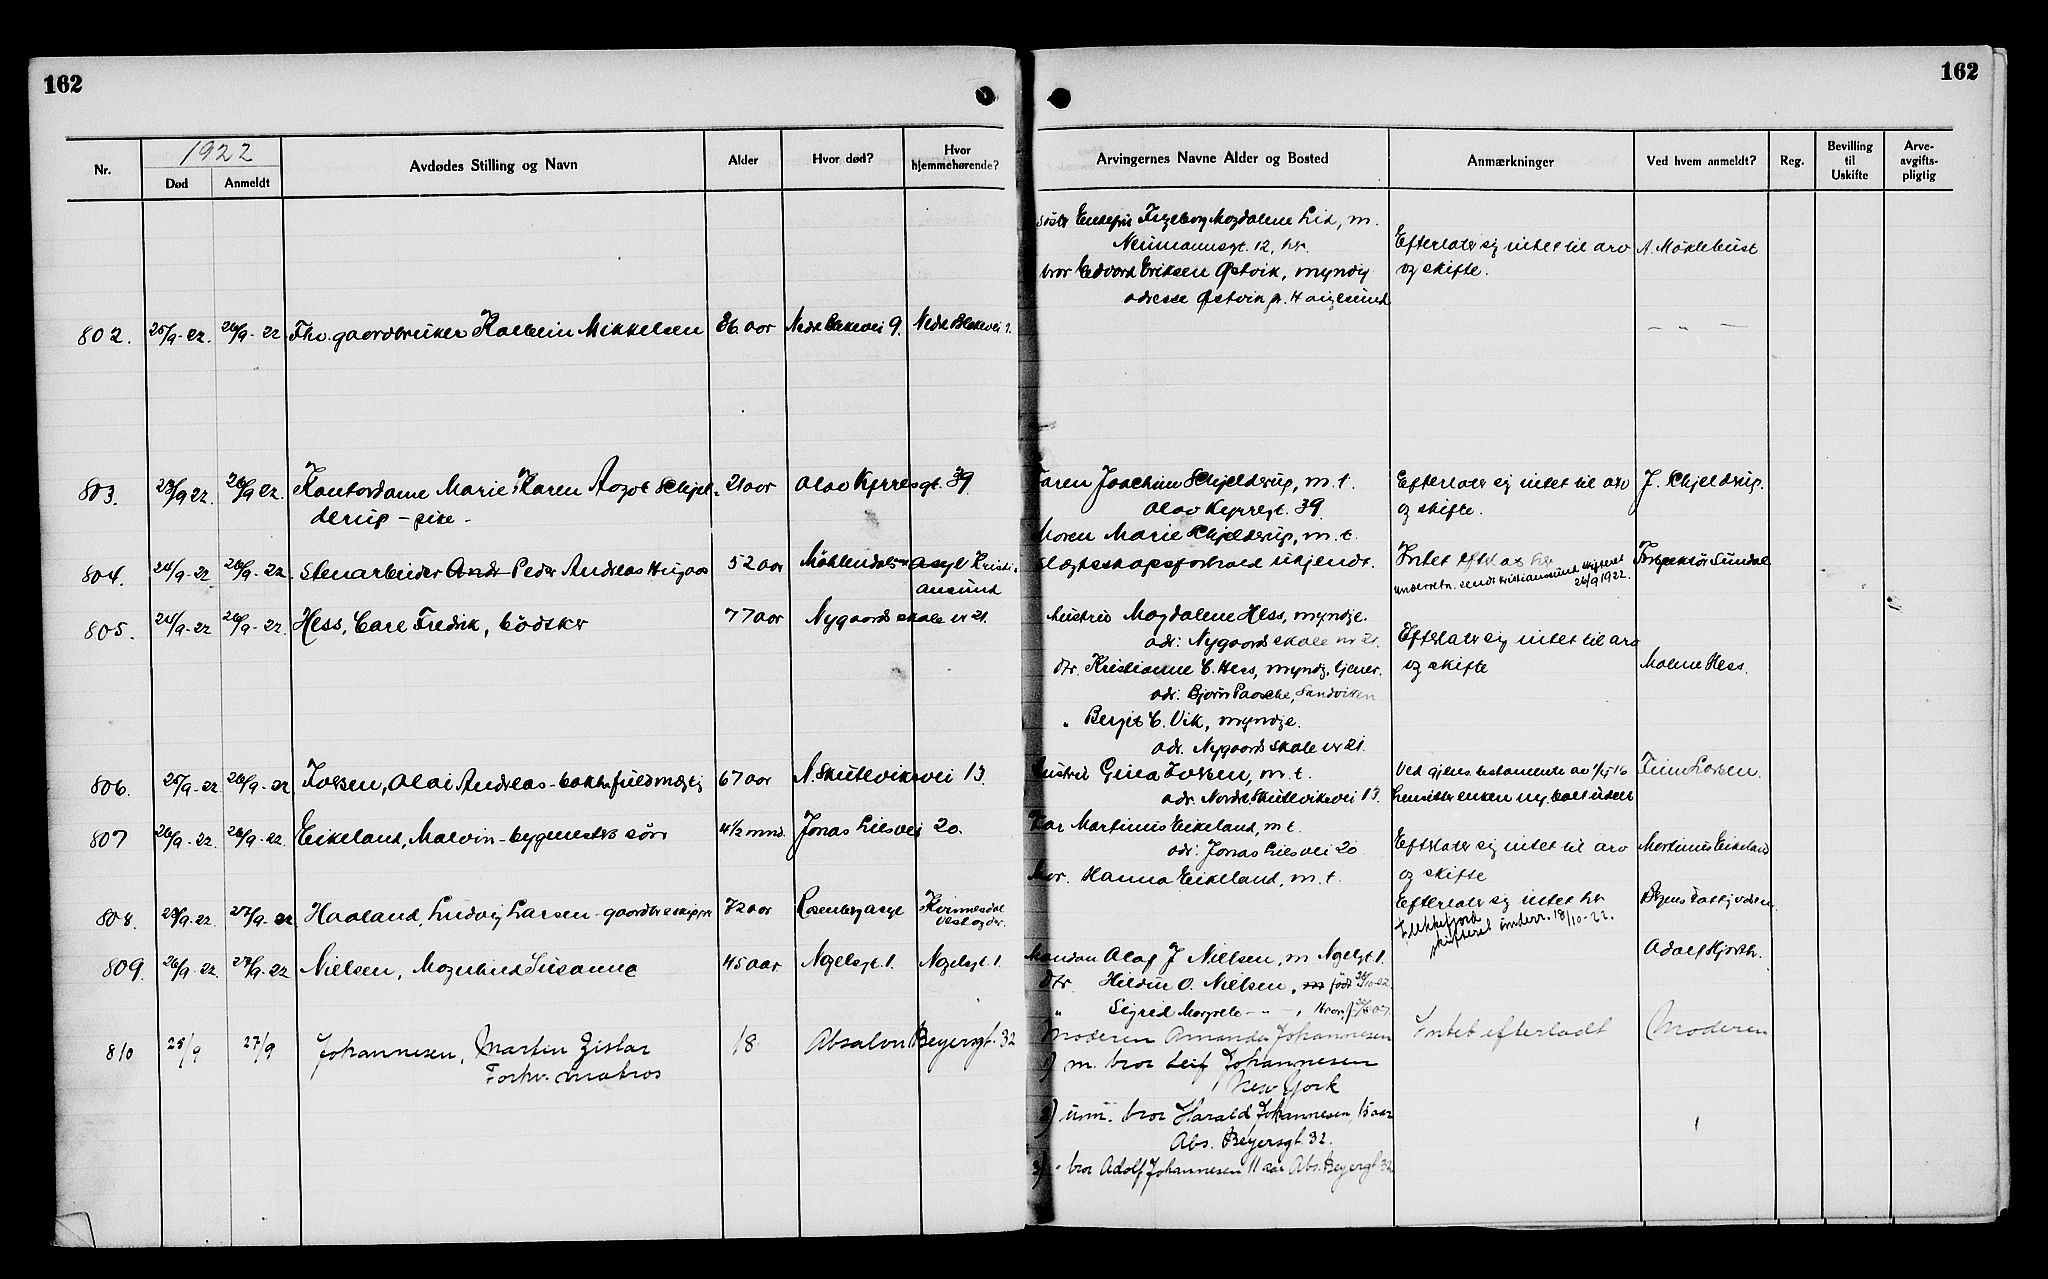 162
162
1922
Nr.
Død
Anmeldt
Avdødes Stilling og Navn
Alder
Hvor død?
Hvor hjemmehørende?
Arvingernes Navne Alder og Bosted
Anmærkninger
Ved hvem anmeldt?
Reg.
Bevilling til Uskifte
Arve-avgifts-pligtig
Magdalene Lid, m.
Neumannsgt. 12, her. Efterlater sig intet til arv
bror Edvard Eriksen Østvik, myndig og skifte.
adresse Østvik pr. Haugesund
802. 25/9-22. 26/9-22. Fhv. gaardbruker Kolbein Mikkelsen 86 aar Nedre Blekevei 9. Nedre Blekevei 9. — " —
803. 23/9 22. 26/9 22. Kontordame Marie Karen Aagot Schjel- 21 aar Olav Kyrresgt. 39. Faren Joachim Schjelderup, m.t. Efterlater sig intet til arv J. Schjelderup.
derup – pike – Olav Kyrresgt. 39. og skifte.
Moren Marie Schjelderup, m.t.
804. 24/9-22. 26/9-22. Stenarbeider Peder Andreas 52 aar Møhlendalsasyl Kristi- Slegtskapsforhold ukjendt. Intet efterlatt her Inspektør Sundal
ansund underretn. sendt Kristiansund skifteret 26/9 1922.
805. 24/9-22 26/9-22. Hess, Carl Fredrik, bødker 77 aar Nygaards skole nr 21. Hustru Magdalene Hess, myndge.
adr. Nygaards skole nr 21. Efterlater sig intet til arv
Dtr. Kristianne C. Hess, myndg. og skifte Malene Hess.
adr. Bjørn Paasche, Sandviken
" Bergit C. Vik, myndge.
adr. Nygaards skole nr 21.
806. 25/9-22 26/9-22 Olai Andreas 67 aar N. Skuteviksvei 13. Hustru Gina m.t. Ved gjens. testamente av
adr. Nordre Skuteviksvei 13. hensitter enken
807 26/9-22. 26/9-22. Eikeland, Malvin – bygmesters søn 4 1/2 mnd. Jonas Liesvei 20. Far Martinus Eikeland, m.t.
adr. Jonas Liesvei 20 Efterlater sig intet til arv Martinus Eikeland
Mor. Hanna Eikeland, m.t. og skifte
808. 23/9-22. 27/9-22 Haaland, Ludvig Larsen 72 aar Rosenberg asyl Kvinnesdal Efterlater sig intet her. Bergens
Vestagder. Flekkefjord skifteret underr. 18/10-22.
809. 26/9-22. 27/9-22 Nielsen, Susanne 45 aar Nygt. 1. Manden Olaf J Nielsen, m Adolf Hjorth.
Dtr. Hildur O. Nielsen, født
" Sigrid Margrete – " –
810 25/9 27/9 Johannesen, Martin Gislar 18 Absalon Beyersgt. 32 Moderen Amanda Johannesen Intet efterladt Moderen
Forhv. matros 1) m. bror Leif Johannesen
New York
2) um. bror Harald Johannesen, 15 aar
Abs. Beyersgt. 32.
3) " bror Adolf Johannesen 11 aar Abs. Beyersgt 32